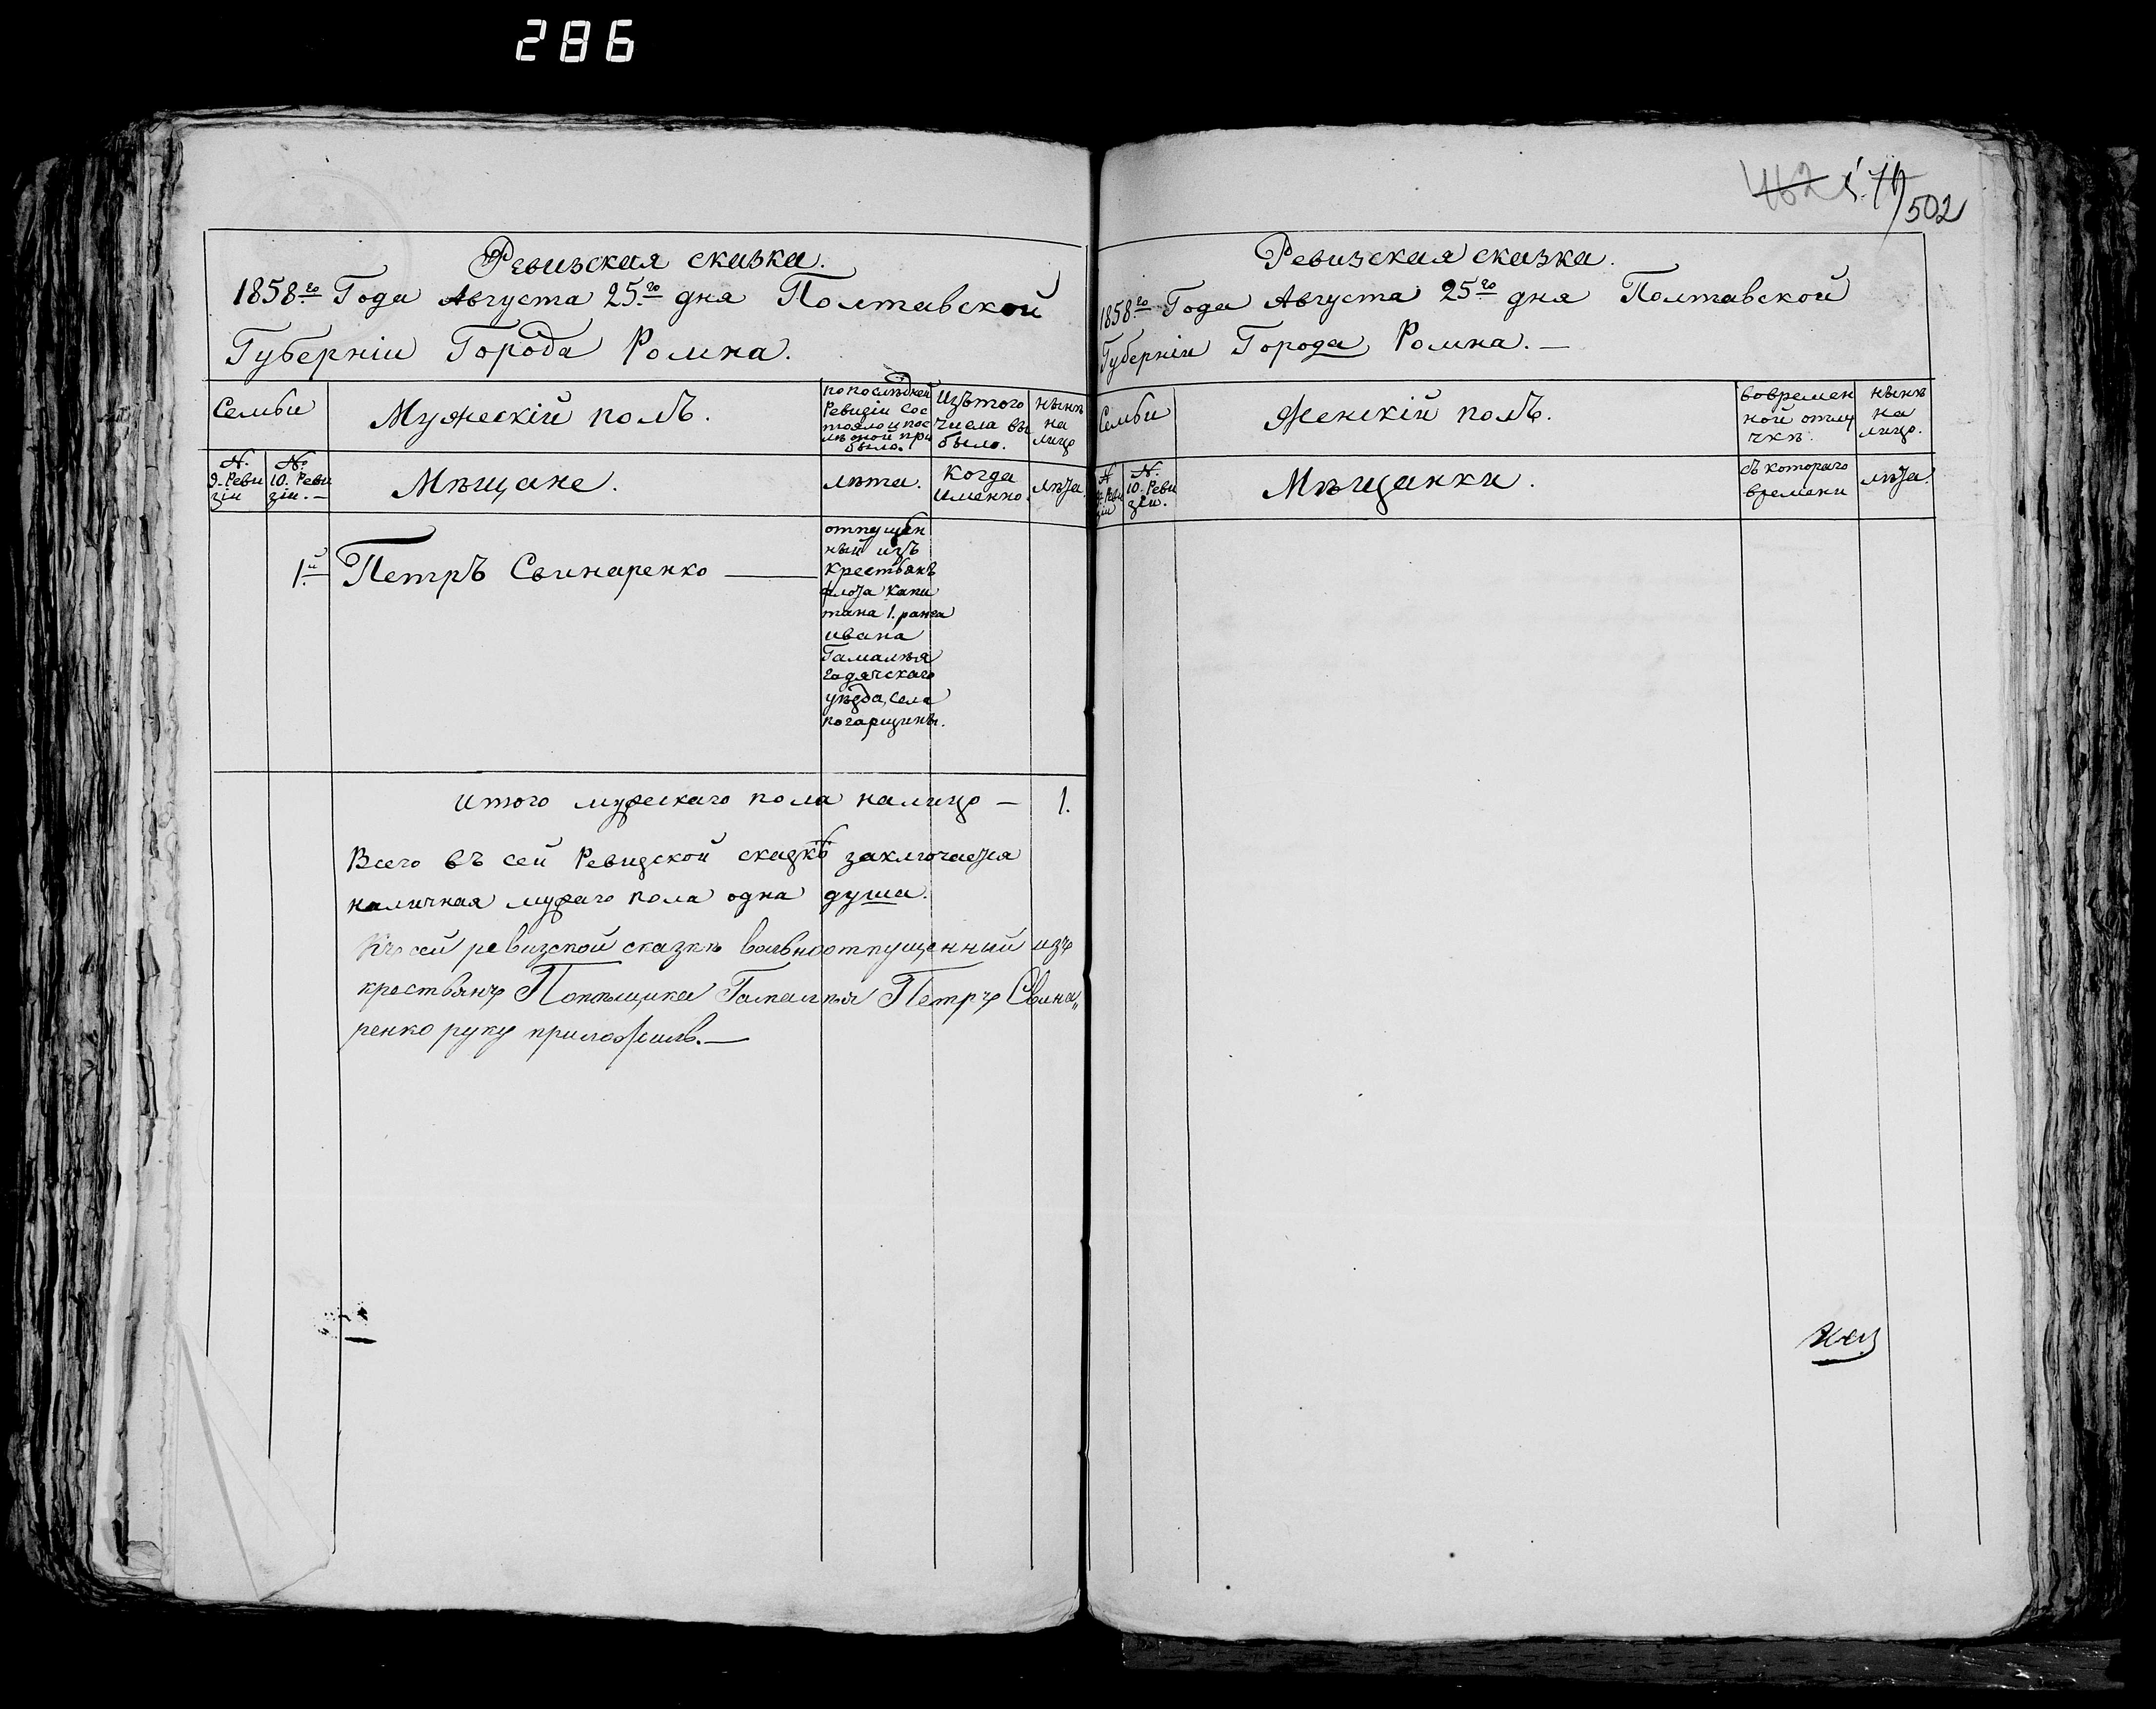 286
502
Ревизская сказка.
1858го Года Августа 25го дня Полтавской
Губерніи Города Ромна.
Семьи
Мужескій полъ.
по послѣдней
Ревизіи сос
тояло и пос
лѣ оной при
было.
Изъ того
числа вы
было.
нынѣ
на
лицо
N.
9. Реви
зіи
N.
10. Реви
зіи.
Мѣщане.
лѣта.
Когда
именно.
лѣта.
1.й Петръ Свинаренко
отпущен
ный изъ
крестьянъ
флота капи
тана 1. ранга
ивана
Гамалѣя
гадячскаго
уѣзда, села
погарщины.
итого мужескаго пола налицо — 1.
Всего въ сей Ревизской сказкѣ заключается
наличная мужаго пола одна душа.
Къ сей ревизской сказкѣ вольноотпущенный изъ
крестьянъ Помѣщика Гамалѣя Петръ Свина„
ренко руку приложилъ.—
Ревизская сказка.
1858го Года Августа 25го дня Полтавской
Губерніи Города Ромна.—
Семьи
Женскій полъ.
во времен
ной отлу
чкѣ.
нынѣ
на
лицо.
N
9. Реви
зіи
N.
10. Реви
зіи.
Мѣщанки.
съ котораго
времени
лѣта.